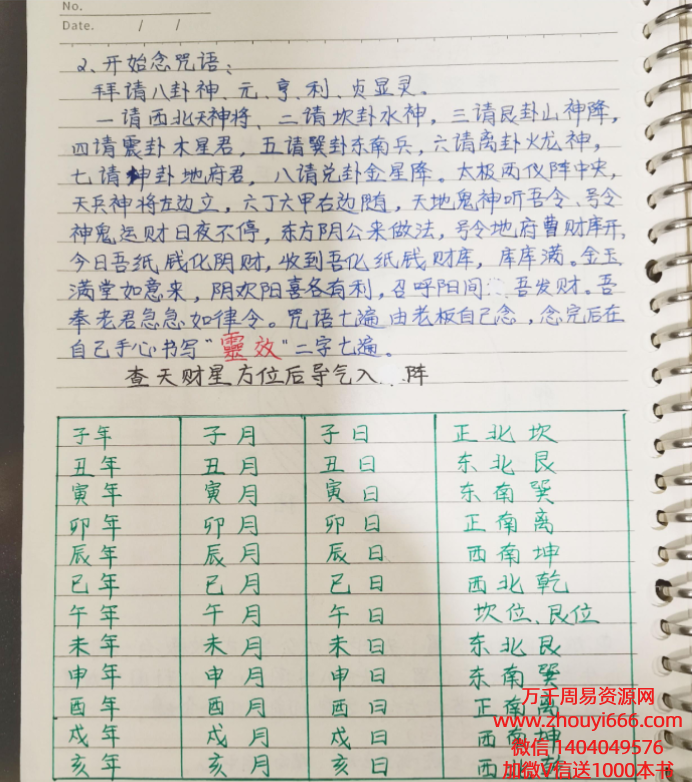 No.
Date. / /
2、开始念咒语：
拜请八卦神、元、亨、利、贞显灵。
一请西北天神将、二请坎卦水神，三请艮卦山神降，
四请震卦木星君，五请巽卦东南兵，六请离卦火龙神，
七请坤卦地府君，八请兑卦金星降。太极两仪阵中央，
天兵神将左边立，六丁六甲右边随，天地鬼神听吾令、号令
神鬼运财日夜不停，东方阴公来做法，号令地府曹财库开，
今日吾纸钱化阴财，收到吾化纸钱财库，库库满。金玉
满堂如意来，阴欢阳喜各有利，召呼阳间 吾发财。吾
奉老君急急如律令。咒语七遍由老板自己念，念完后在
自己手心书写“靈效”二字七遍。
查天财星方位后导气入 阵
子年 子月 子日 正北坎
丑年 丑月 丑日 东北艮
寅年 寅月 寅日 东南巽
卯年 卯月 卯日 正南离
辰年 辰月 辰日 西南坤
巳年 巳月 巳日 西北乾
午年 午月 午日 坎位、艮位
未年 未月 未日 东北艮
申年 申月 申日 东南巽
酉年 酉月 酉日 正南离
戌年 戌月 戌日 西南坤
亥年 亥月 亥日 西北乾
万千周易资源网
www.zhouyi666.com
微信1404049576
加微V信送1000本书